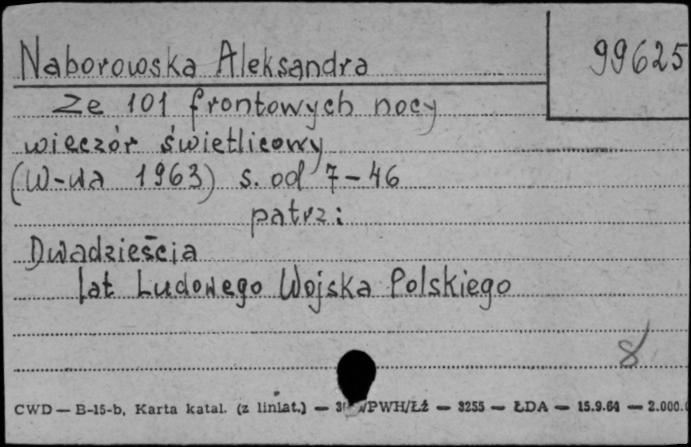 Naborowska Aleksandra
99625
Ze 101 frontowych nocy
wieczór świetlicowy
(W-wa 1963) s. od 7-46
patrz:
Dwadzieścia
lat Ludowego Wojska Polskiego
8
CWD — B-15-b, Karta katal. (z liniat.) — /PWH/Łź — 3255 — ŁDA — 15.9.64 — 2.000.